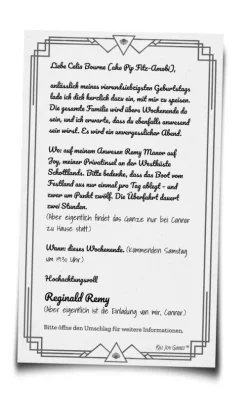 Liebe Celia Bourne (aka Pip Fitz-Amobi),
anlässlich meines vierundsiebzigsten Geburtstags
lade ich dich herzlich dazu ein, mit mir zu speisen.
Die gesamte Familie wird übers Wochenende da
sein, und ich erwarte, dass du ebenfalls anwesend
sein wirst. Es wird ein unvergesslicher Abend.
Wo: auf meinem Anwesen Remy Manor auf
Joy, meiner Privatinsel an der Westküste
Schottlands. Bitte bedenke, dass das Boot vom
Festland aus nur einmal pro Tag ablegt - und
zwar um Punkt zwölf. Die Überfahrt dauert
zwei Stunden.
(Aber eigentlich findet das Ganze nur bei Connor
zu Hause statt.)
Wann: dieses Wochenende. (Kommenden Samstag
um 19:30 Uhr.)
Hochachtungsvoll
Reginald Remy
(Aber eigentlich ist die Einladung von mir, Connor.)
Bitte öffne den Umschlag für weitere Informationen.
Kill Joy Games™